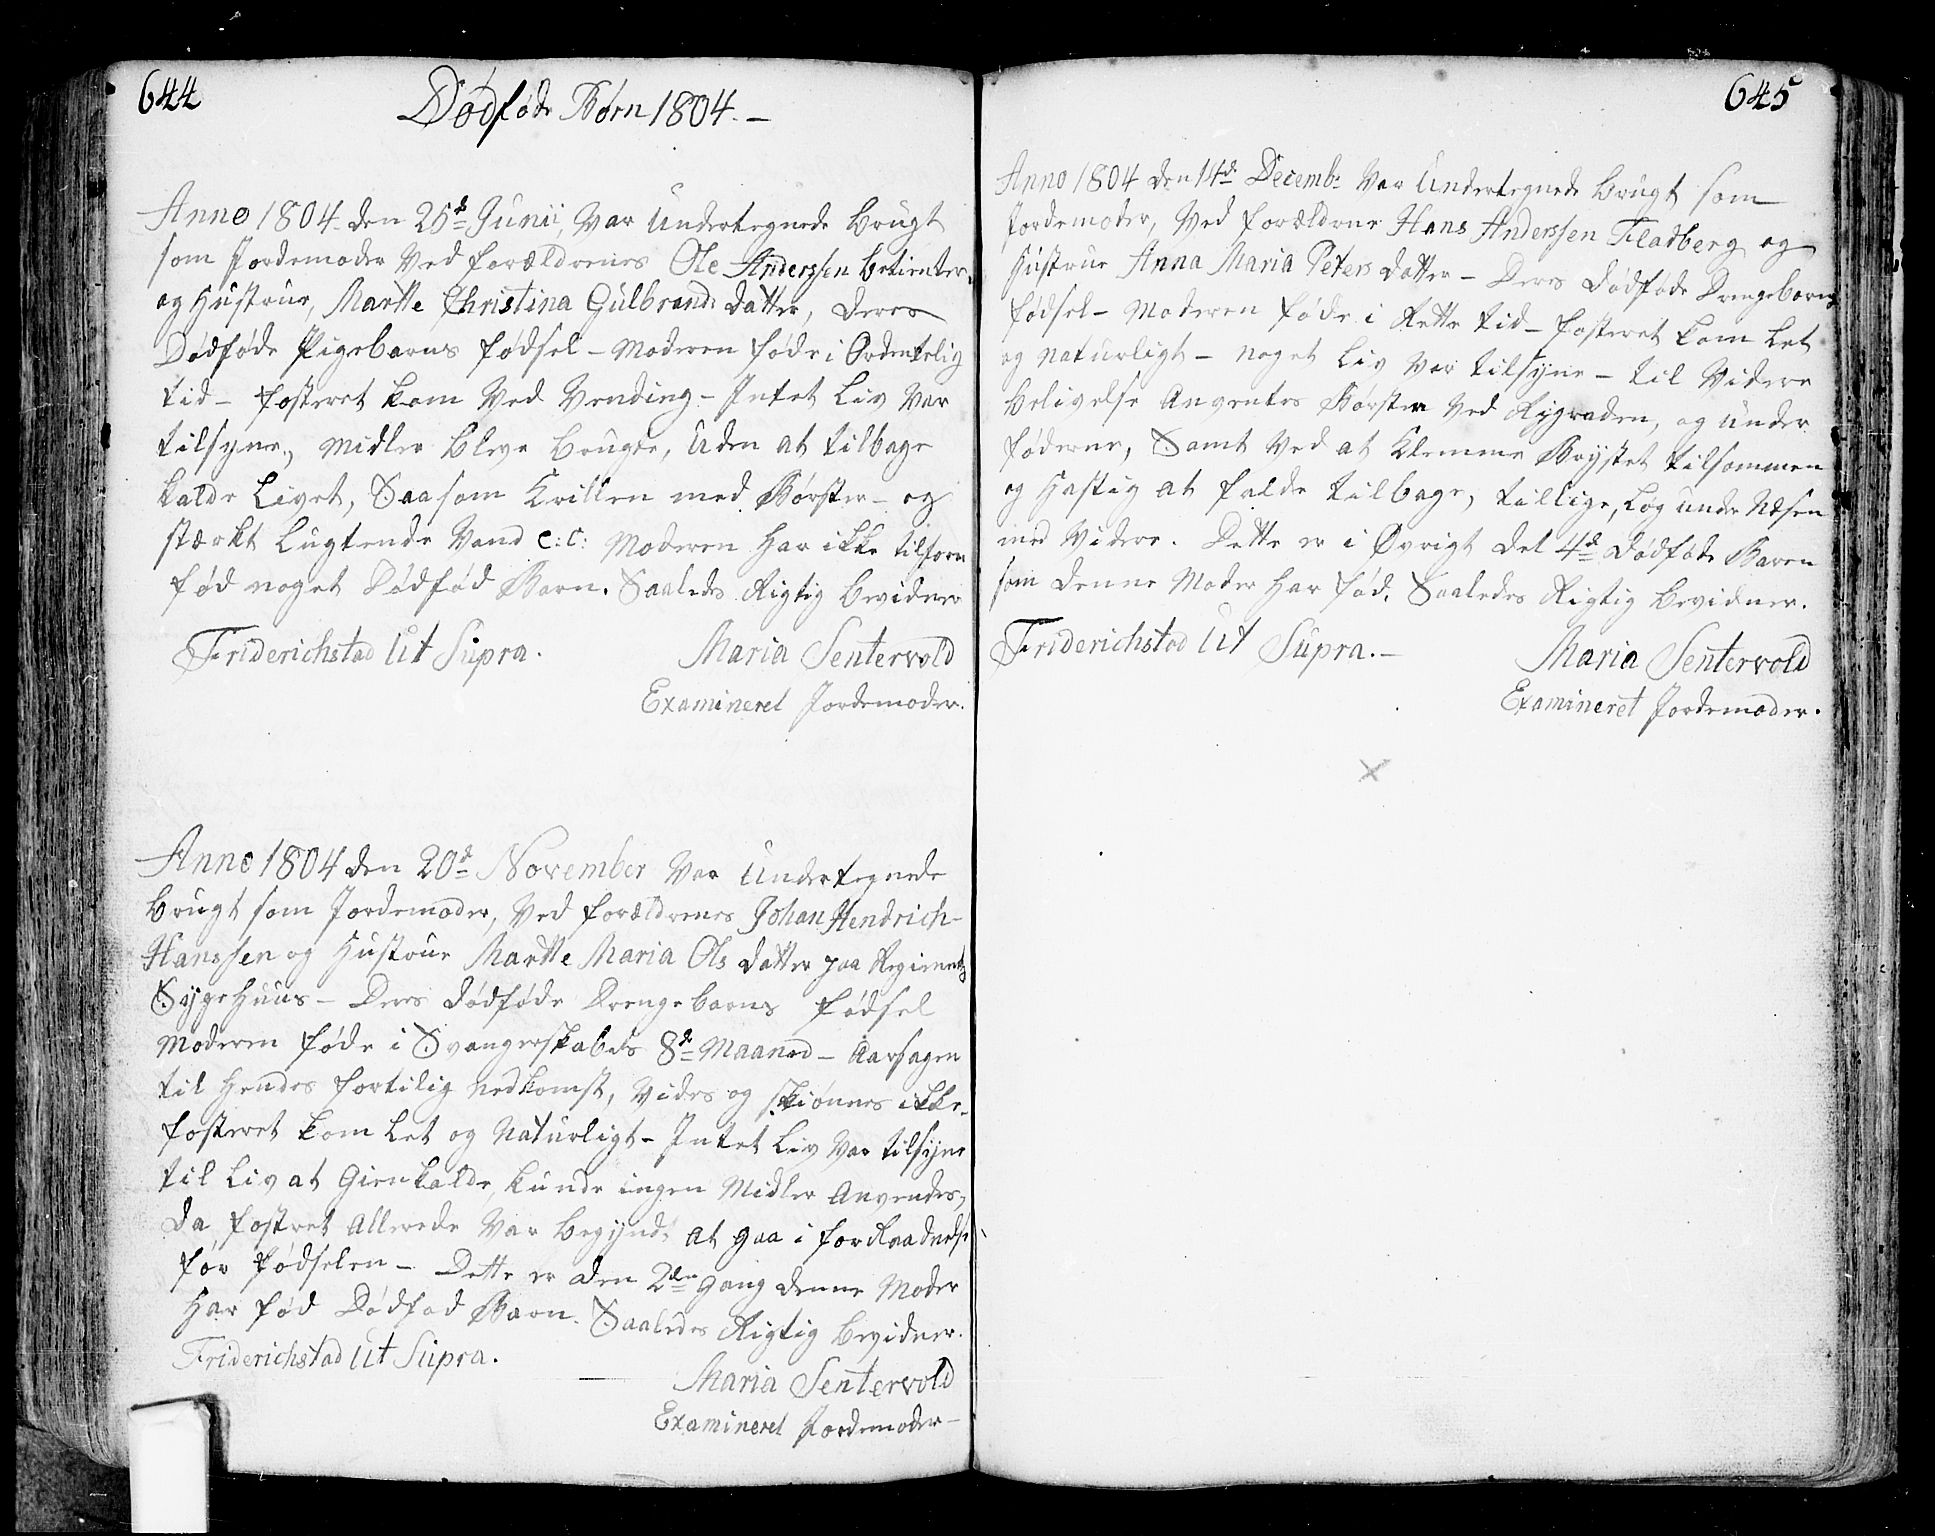 644
Dødføde Børn 1804. –
Anno 1804. den 25d Junii, Var Undertegnede brugt
som Jordemoder Ved forældrenes Ole Anderssen betienter,
og Hustrue, Marthe Christina Gulbrands datter, deres
Dødføde Pigebarns fødsel – Moderen føde i Ordentelig
tid – fosteret kom Ved Vending – Intet Liv Var
tilsyne, Midler bleve brugte, Uden at tilbage
kalde Livet, Saasom Krillen med Børster – og
stærkt Lugtende Vand e: c: Moderen har ikke tilforn
fød noget Dødfød Barn. Saaledes Rigtig bevidner
Friderichstad Ut Supra.
Maria Sentervold
Examineret Jordemoder.
Anno 1804 den 20d November Var Undertegnede
brugt som Jordemoder, Ved forældrenes Johan Hendrich
Hanssen og Hustrue Marthe Maria Ols datter paa Regiments
Sygehuus – Deres dødføde Drengebarns fødsel
Moderen føde i Svangerskabets 8de Maaned – Aarsagen
til Hendes fortilig nedkomst, Vides og skiønnes ikke.
fosteret kom Let og Naturligt – Intet Liv Var tilsyne
til Liv at Gienkalde, kunde ingen Midler Anvendes,
da fostret Allerede Var begyndt at gaa i forRaadnelse
før fødselen – Dette er den 2den gang denne Moder
Har fød Dødfød Barn. Saaledes Rigtig bevidner.
Friderichstad Ut Supra.
Maria Sentervold
Examineret Jordemoder –
645
Anno 1804 den 14d Decembr Var Undertegnede brugt som
Jordemoder, Ved forældrene Hans Anderssen Fladberg og
Hustrue Anna Maria Peters datter – Deres dødføde Drengebarns
fødsel – Moderen føde i Rette tid – fosteret kom Let
og Naturligt – noget Liv Var tilsyne – til Videre
belivelse Anventes Børsten Ved Rygraden, og Under
føderne, Samt Ved at Klemme Brystet tilsammen
og Hastig at falde tilbage, tillige, Løg under Næsen
med Videre. Dette er i Øvrigt det 4d dødføde Baren
som denne Moder Har fød. Saaledes Rigtig bevidner.
Friderichstad Ut Supra. –
Maria Sentervold
Examineret Jordemoder.